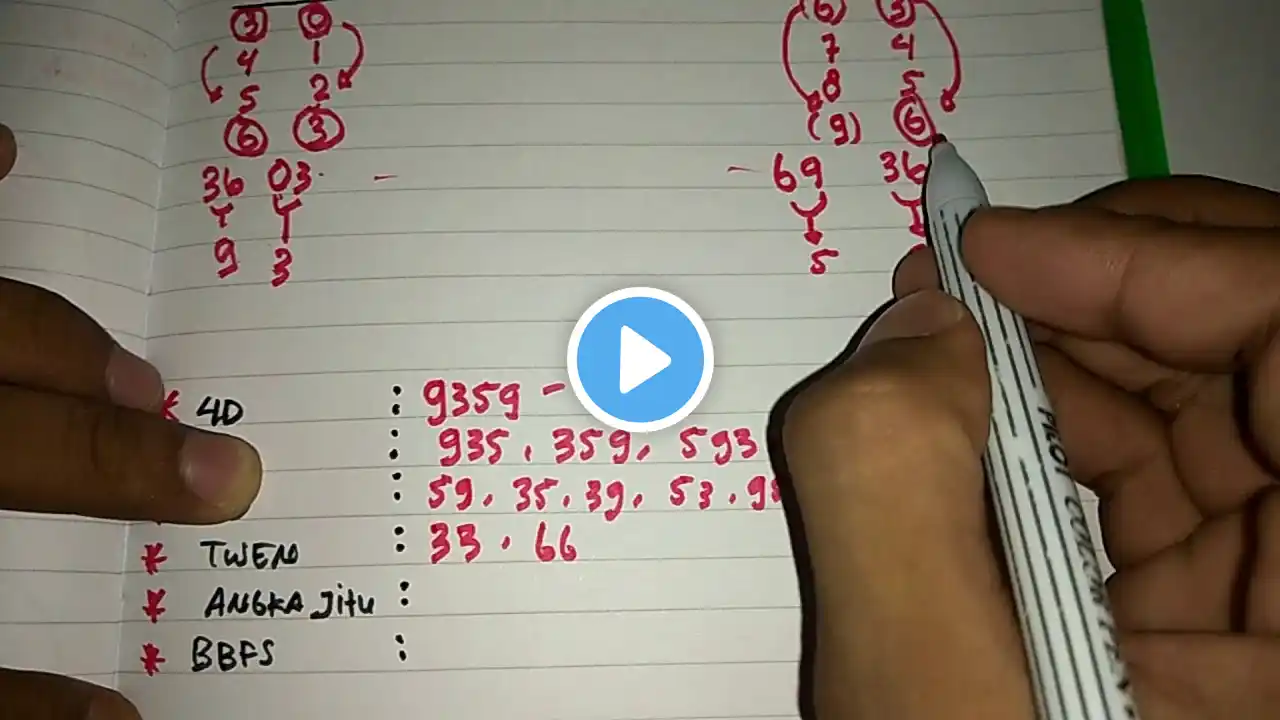 3 0 (6) 3
4 1 7 4
5 2 8 5
6 3 (9) 6
36 03. - - 69 36
9 3 5
* 4D : 9359 -
: 935, 359, 593
: 59. 35. 39, 53.
* TWEN : 33. 66
* ANGKA Jitu :
* BBFS :